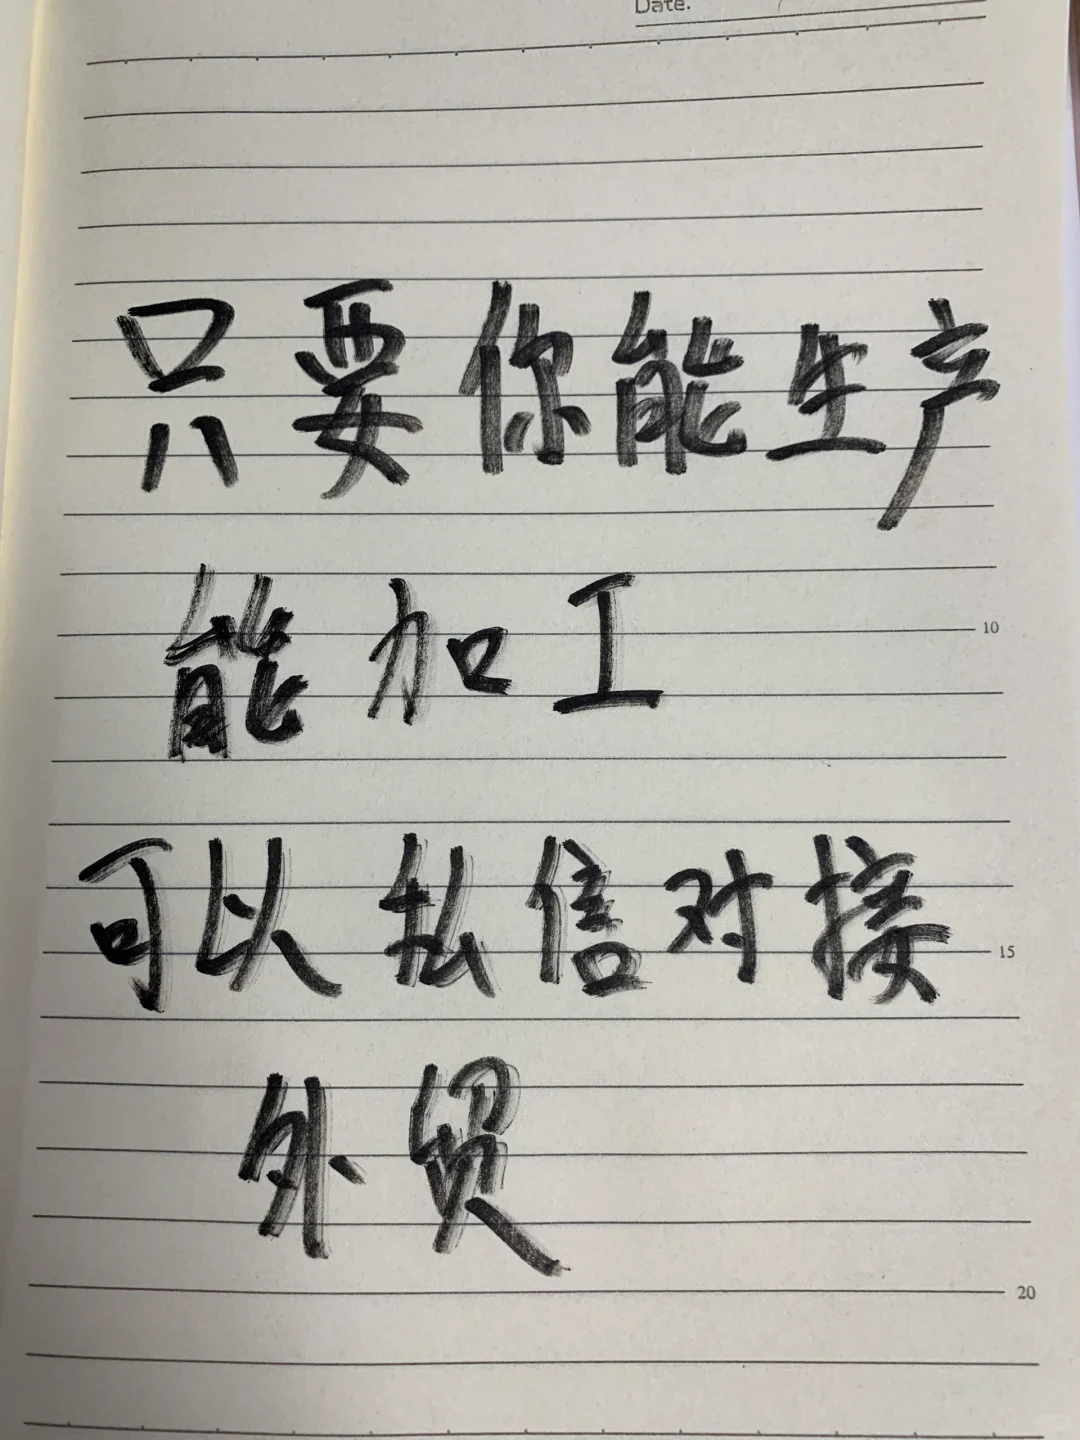 Date.
只要你能生产
能加工
10
可以私信对接
15
外贸
20